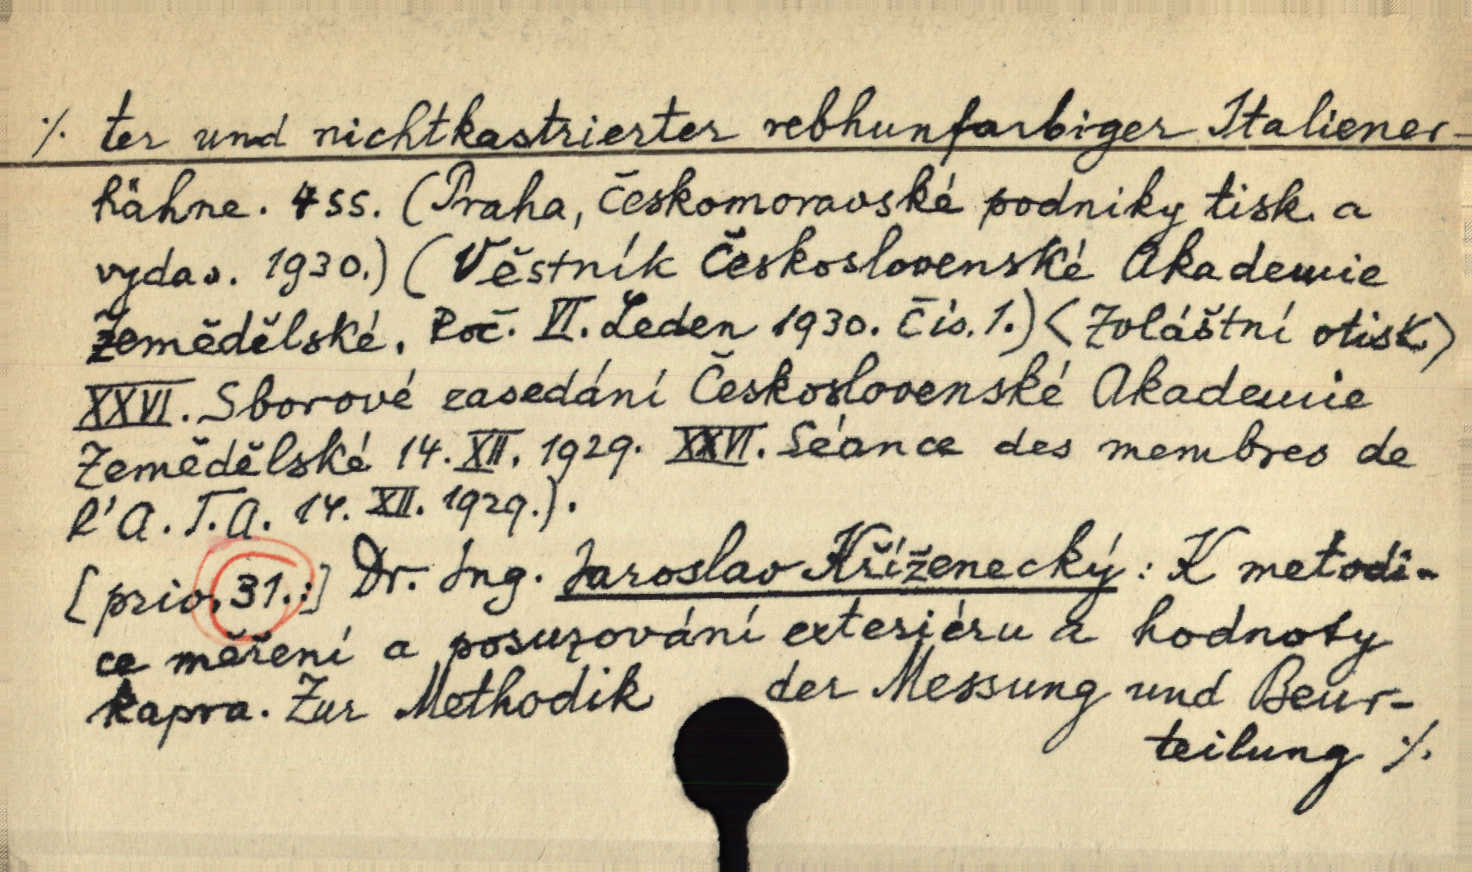 ./. ter und nichtkastrierter rebhunfarbiger Italiener-
hähne. 4 SS. (Praha, Českomoravské podniky tisk. a
vydav. 1930.) (Věstník Československé Akademie
Zemědělské. Roč. VI. Leden 1930. Čís. 1.) <Zvláštní otisk>
XXVI. Sborové zasedání Československé Akademie
Zemědělské 14. XII. 1929. XXVI. Séance des membres de
l'A. T. A. 14. XII. 1929.).
[priv. 31.:] Dr. Ing. Jaroslav Kříženecký: K metodi-
ce měření a posuzování exteriéru a hodnoty
kapra. Zur Methodik der Messung und Beur-
teilung ./.